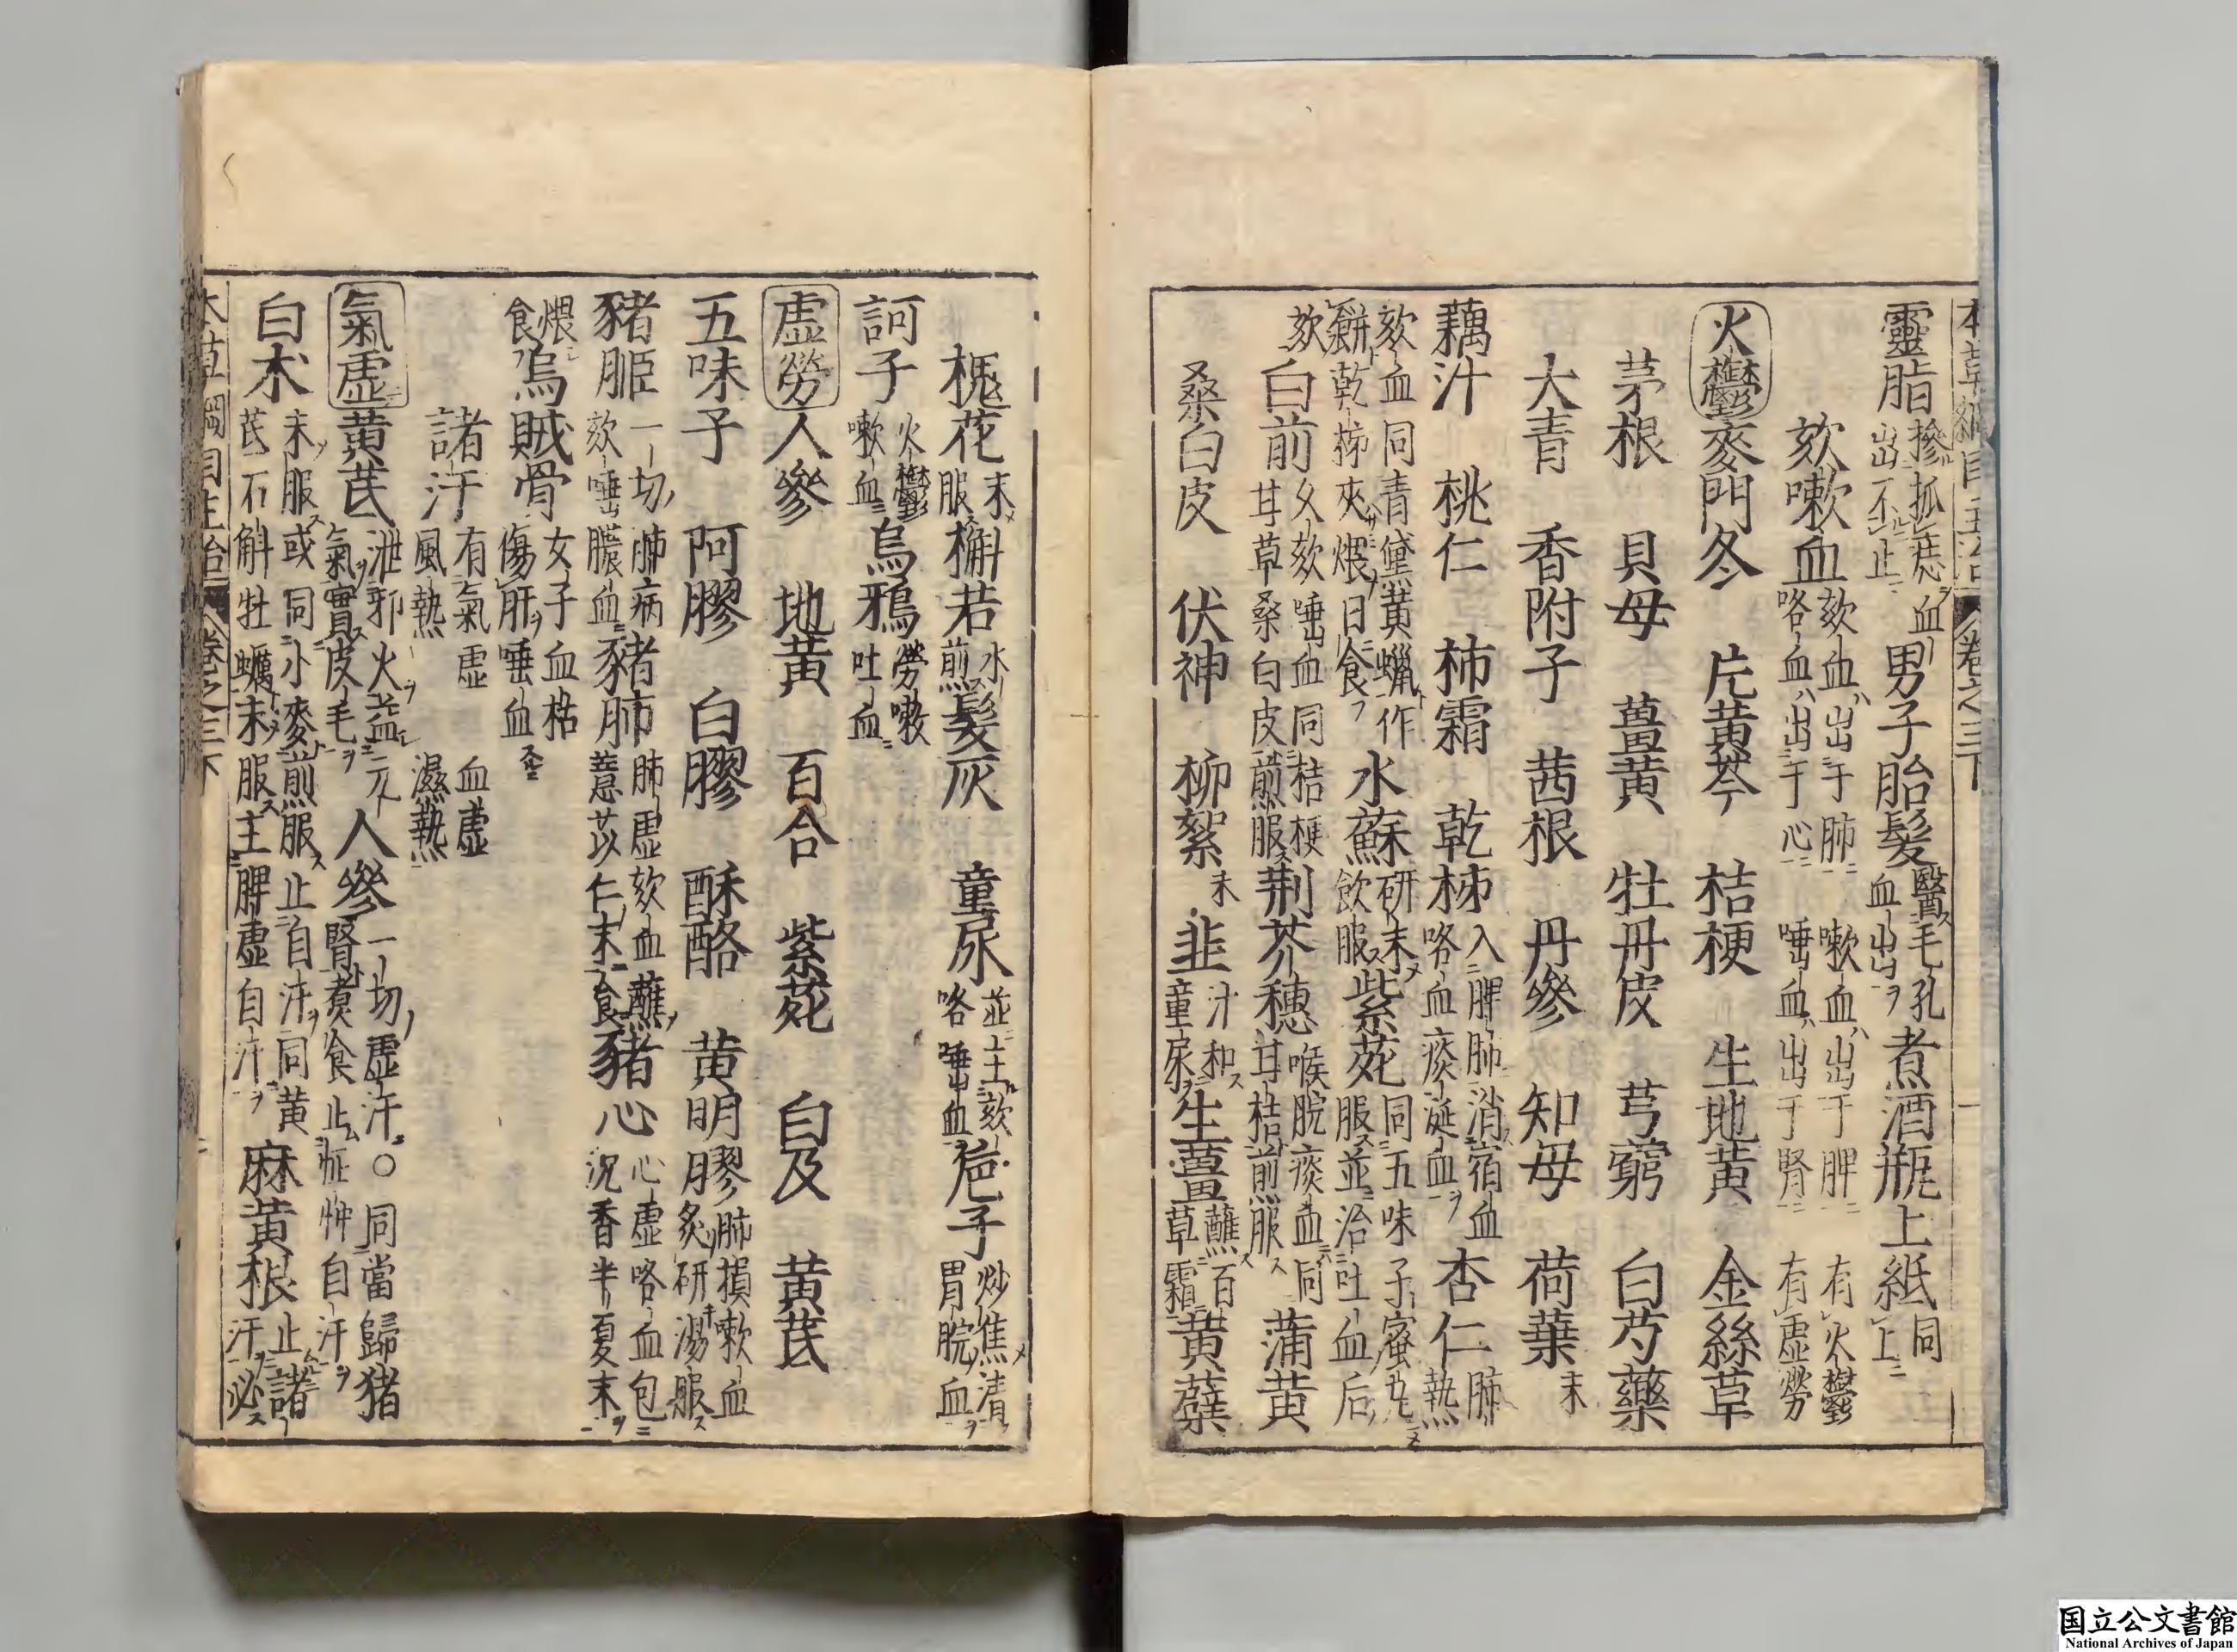 本草綱目主治 卷之三下
靈脂 摻抓痣血出不止 男子胎髮 醫毛孔血出 煮酒瓶上紙 同上
欬嗽血 欬血出于肺 嗽血出于脾 有火鬱 咯血出于心 唾血出于腎 有虛勞
火鬱 麥門冬 片黃芩 桔梗 生地黃 金絲草
茅根 貝母 薑黃 牡丹皮 芎藭 白芍藥
大青 香附子 茜根 丹參 知母 荷葉 末
藕汁 桃仁 柿霜 乾柿 入脾肺消宿血咯血痰涎血 杏仁 肺熱
欬血同青黛黃蠟作餅乾柿夾煨日食 水蘇 研末飲服 紫菀 同五味子蜜丸服並治吐血后
欬 白前 久欬唾血同桔梗甘草桑白皮煎服 荆芥穗 喉脘痰血同甘桔煎服 蒲黃
桑白皮 伏神 柳絮 末 韭 汁和童尿 生薑 蘸百草霜 黃蘗
槐花 末服 槲若 水煎 髮灰 童尿 並主欬咯唾血 梔子 炒焦清胃脘血
訶子 火鬱嗽血 烏鴉 勞嗽吐血
虛勞 人參 地黃 百合 紫菀 白及 黃芪
五味子 阿膠 白膠 酥酪 黃明膠 肺損嗽血炙研湯服
豬䏰 一切肺病欬唾膿血 豬肺 肺虛欬血蘸薏苡仁末食 豬心 心虛咯血包沉香半夏末
煨食 烏賊骨 女子血枯傷肝唾血
諸汗 有氣虛 血虛 風熱 濕熱
氣虛 黃芪 泄邪火益元氣實皮毛 人參 一切虛汗○同當歸豬腎煮食止怔忡自汗
白朮 末服或同小麥煎服止自汗同黃芪石斛牡蠣末服主脾虛自汗 麻黃根 止諸汗必
本草綱目主治 卷之三下 二
国立公文書館
National Archives of Japan